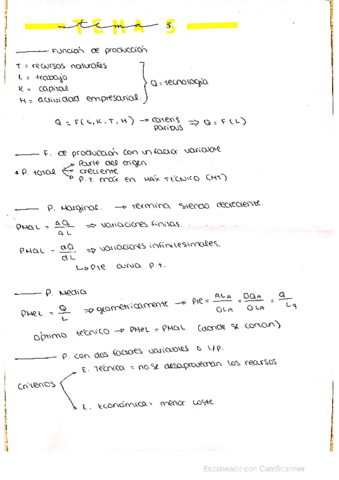 TEMA 5
Función de producción
T = recursos naturales
L = trabajo
K = capital
H = actividad empresarial.
Q = tecnología
Q = F(L, K, T, H) → ceteris paribus ⇒ Q = F(L)
F. de producción con un factor variable
Parte del origen
P. total creciente
P.T. máx en MÁX TÉCNICO (MT)
P. Marginal. → Termina siendo decreciente.
PMaL = ΔQ/ΔL ⇒ variaciones finitas.
PMaL = dQ/dL ⇒ variaciones infinitesimales.
↳ Pte curva P.T.
P. Media
PMeL = Q/L ⇒ geométricamente → Pte = ALA/OLA = OQA/OLA = Q/LA
óptimo técnico → PMeL = PMaL (donde se cortan)
P. con dos factores variables o L/P.
E. Técnica = no se desaprovechan los recursos
Criterios
E. Económica = menor coste
Escaneado con CamScanner